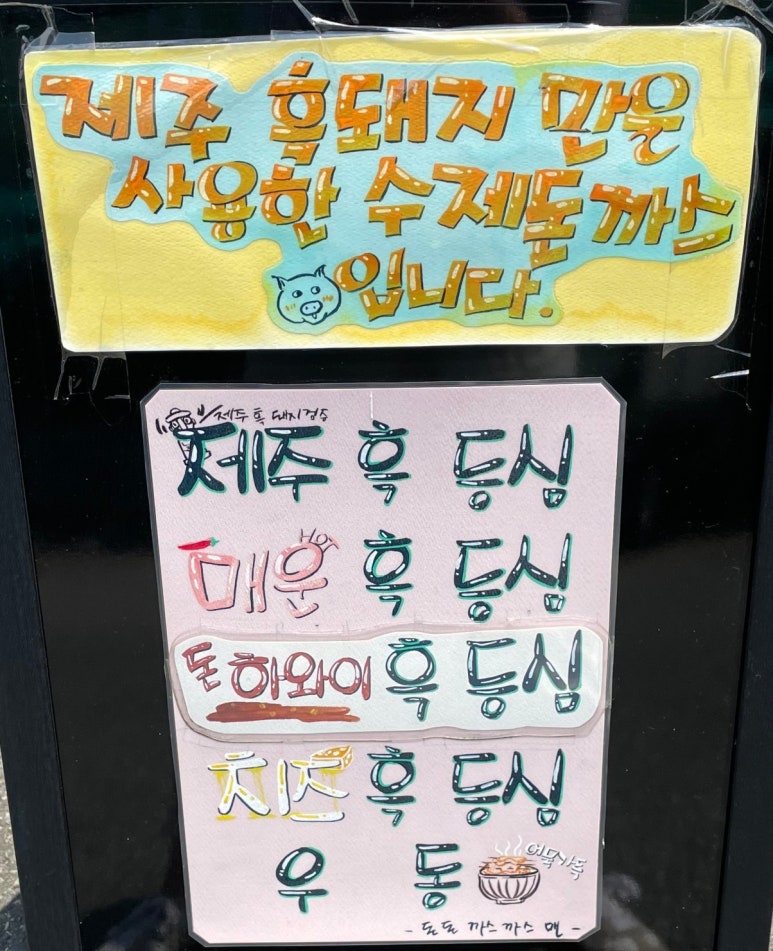 제주 흑돼지 만을
사용한 수제돈까스
입니다.
제주 흑 돼지검수
제주 흑 등심
매운 HOT 흑 등심
돈 하와이 흑 등심
치즈 흑 등심
우 동 어묵가득
- 돈돈 까스까스 맨 -